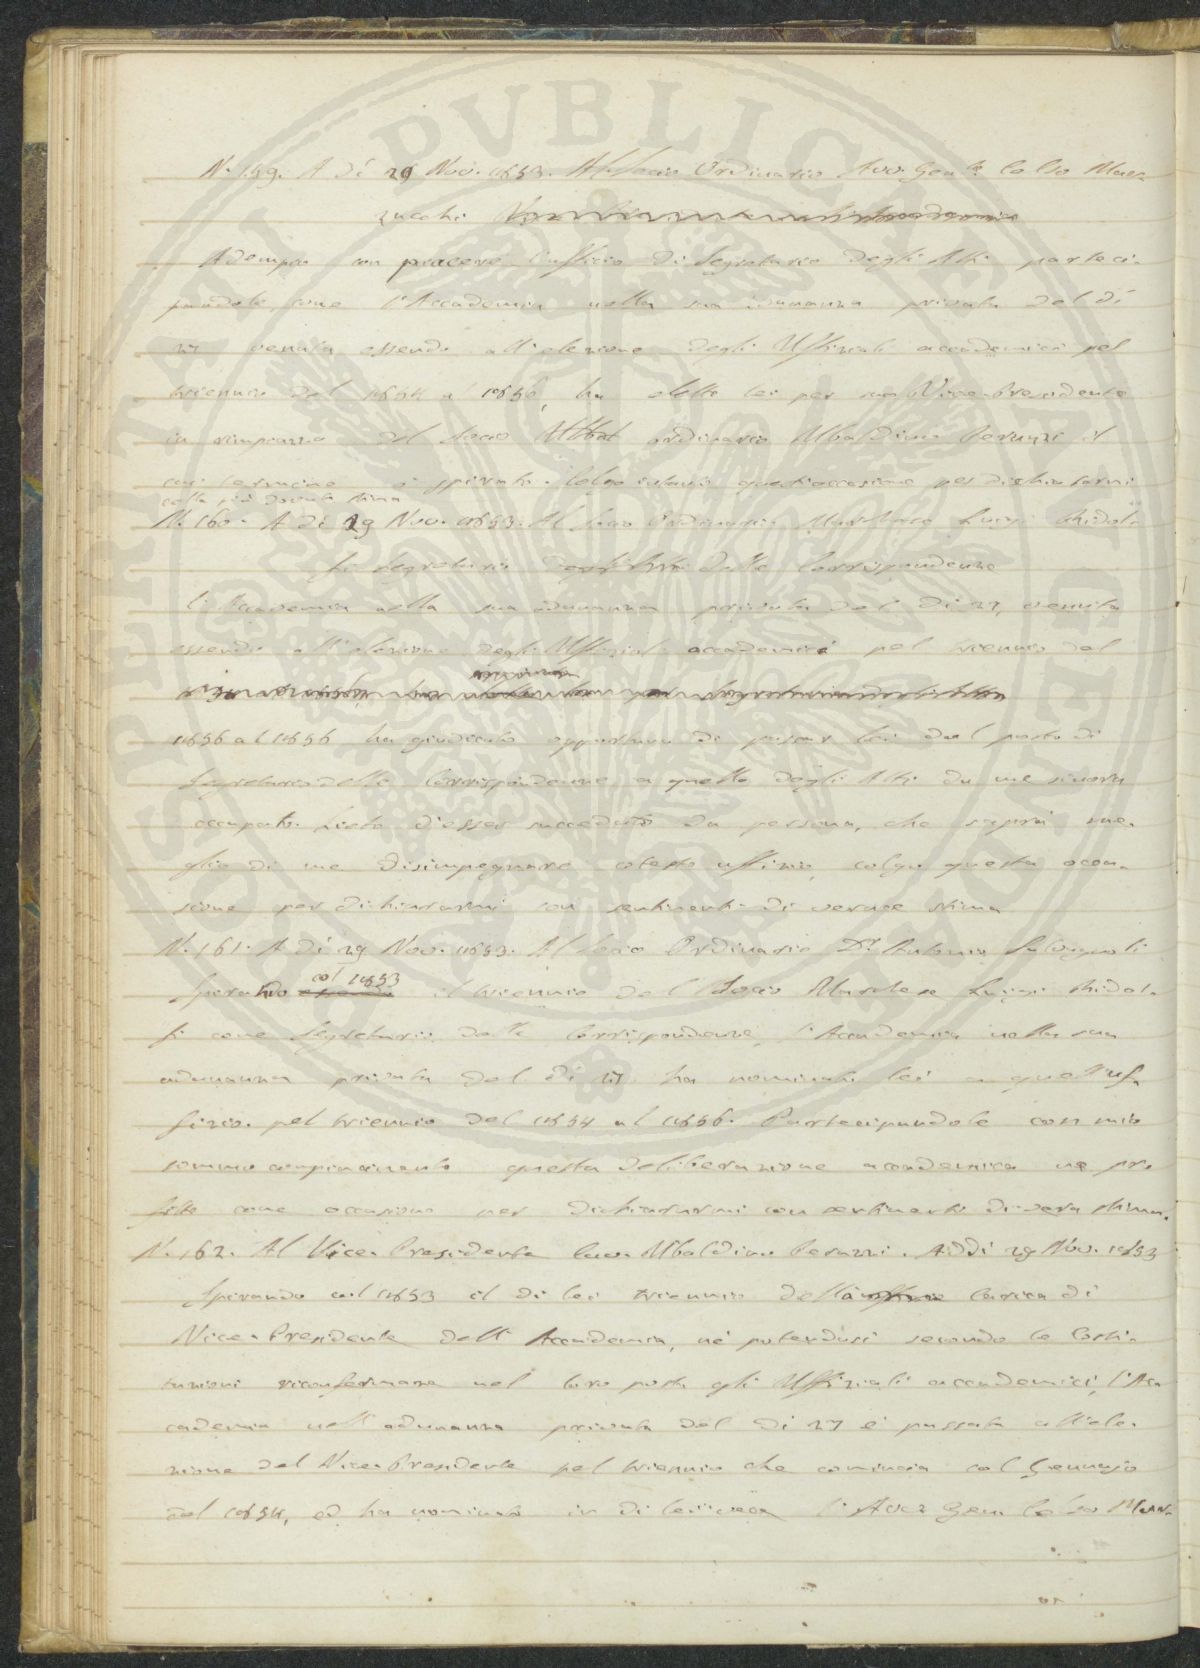 N. 159. A dì 29 Nov. 1853. Al Socio Ordinario Avv. Gen.le Celso Marz-
zucchi
Adempio con piacere l'ufficio di Segretario degli Atti parteci-
pandole, come l'Accademia nella sua adunanza privata del dì
27 venuta essendo all'elezione degli Uffiziali accademici pel
triennio dal 1854 al 1856, ha eletto lei per suo Vice-Presidente
in rimpiazzo del Socio ordinario Ubaldino Peruzzi il
cui termine è spirato. Colgo intanto quest'occasione per dichiararmi
colla più dovuta stima
N. 160. A dì 29 Nov. 1853. Al Socio Ordinario Marchese Luigi Ridol-
fi Segretario delle Corrispondenze
L'Accademia nella sua adunanza privata del dì 27, venuta
essendo all'elezione degli Uffiziali accademici pel triennio dal
1856 al 1856 ha giudicato opportuno di passar lei dal posto di
Segretario delle Corrispondenze a quello degli Atti da me sinora
occupato. Lieto d'esser succeduto da persona, che saprà me-
glio di me disimpegnare cotesto uffizio, colgo questa occa-
sione per dichiararmi con sentimenti di verace stima
N. 161. A dì 29 Nov. 1853. Al Socio Ordinario Dr. Antonio Salvagnoli
Spirando col 1853 il triennio del Socio Marchese Luigi Ridol-
fi come Segretario delle Corrispondenze, l'Accademia nella sua
adunanza privata del dì 27 ha nominato lei a quell'uf-
fizio pel triennio del 1854 al 1856. Partecipandole con mio
sommo compiacimento questa deliberazione accademica ne pro-
fitto come occasione per dichiararmi con sentimenti di vera stima.
N. 162. Al Vice-Presidente Cav. Ubaldino Peruzzi. Addì 29 Nov. 1853
Spirando col 1853 il di lei triennio della carica di
Vice-Presidente dell'Accademia, nè potendosi secondo le Costi-
tuzioni riconfermare nel loro posto gli Uffiziali accademici, l'Ac-
cademia nell'adunanza privata del dì 27 è passata all'ele-
zione del Vice-Presidente pel triennio che comincia col Gennajo
del 1854, ed ha nominato in di lei vece l'Avv. Gen. Celso Marz-